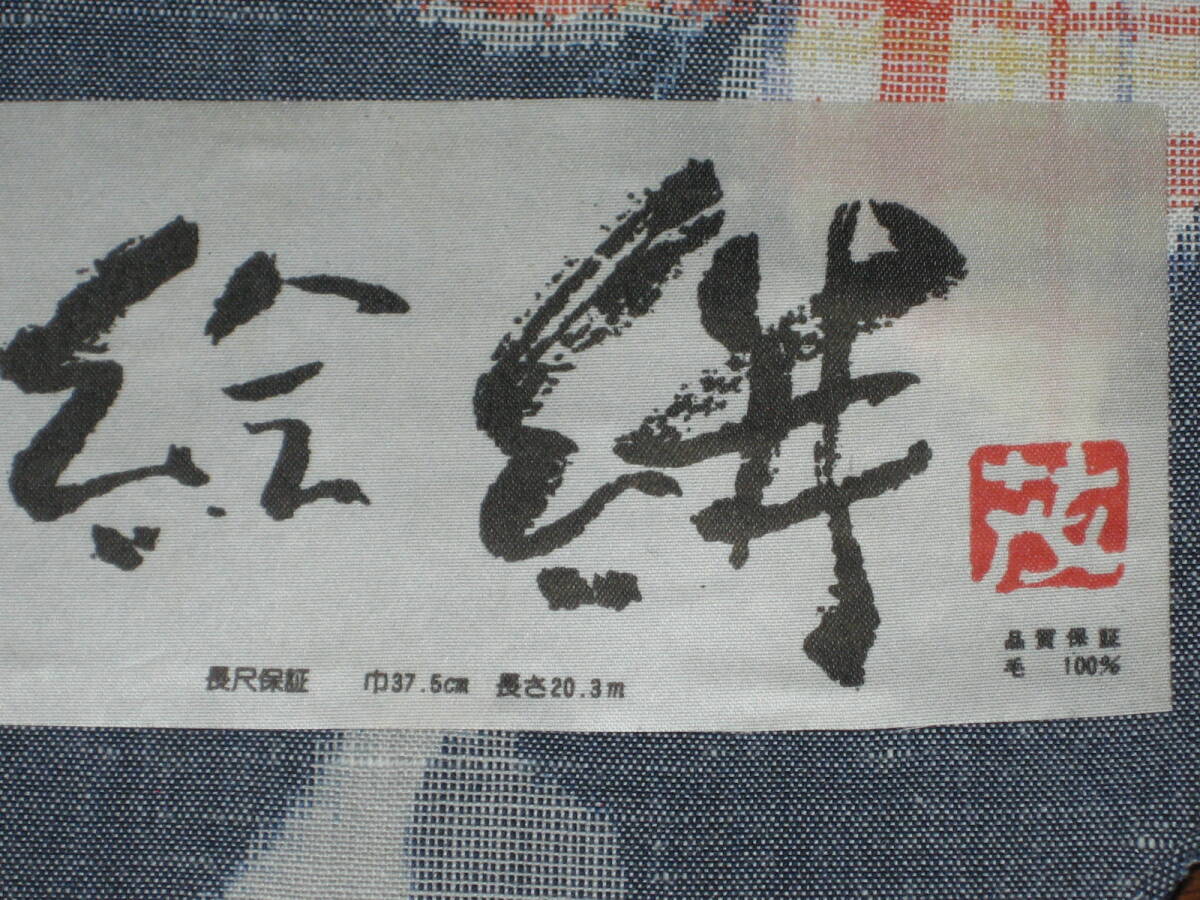 絵絣
長尺保証 巾37.5cm 長さ20.3m
品質保証
毛 100%